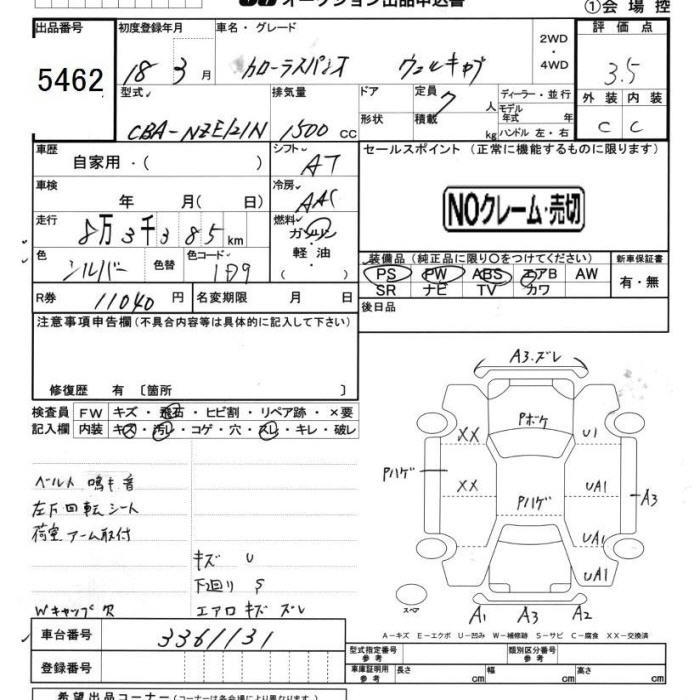 オークション出品申込書
①会場控
出品番号 初度登録年月 車名・グレード 2WD・4WD 評価点
5462 18 3月 カローラスパシオ ウェルキャブ 3.5
型式 排気量 ドア 定員 7人 ディーラー・並行 外装 内装
CBA-NZE121N 1500cc 形状 積載 kg モデル年式 年 ハンドル 左・右 C C
車歴 シフト セールスポイント（正常に機能するものに限ります）
自家用・（ ） AT
車検 冷房 NOクレーム・売切
年 月（ 日） AAC
走行 燃料
8万3千385km ガソリン・軽油・（ ）
色 色替 色コード 装備品（純正品に限り○をつけてください） 新車保証書
シルバー 1D9 PS PW ABS エアB AW 有・無
SR ナビ TV カワ
R券 11040円 名変期限 月 日 後日品
注意事項申告欄（不具合内容等は具体的に記入して下さい）
修復歴 有〔箇所 〕
検査員 FW キズ・飛石・ヒビ割・リペア跡・×要
記入欄 内装 キズ・汚レ・コゲ・穴・スレ・キレ・破レ
ベルト 鳴き音
左下回転シート
荷室アーム取付
キズ U
下廻り S
Wキャップ欠 エアロキズ ズレ
A3.ズレ
Pボケ
XX U1
Pハゲ
XX Pハゲ UA1 A3
UA1
UA1
スペア
A1 A3 A2
A－キズ E－エクボ U－凹み W－補修跡 S－サビ C－腐食 XX－交換済
車台番号 3361131
登録番号
型式指定番号 参考 類別区分番号 参考
車庫証明用 参考 長さ cm 幅 cm 高さ cm
希望出品コーナー（コーナーは各会場により異なります）